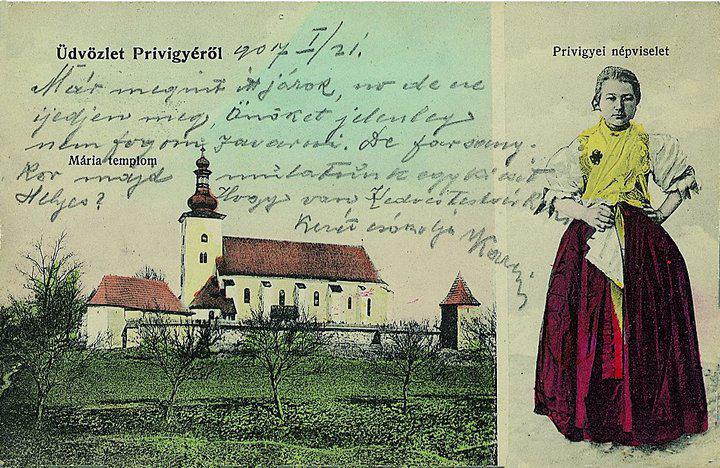 Üdvözlet Privigyéről 907 I/21.
Már megint itt járok, no de ne
ijedjen meg, Önöket jelenleg
nem fogom zavarni. De farsang-
Mária templom
kor majd mulatunk egy kicsit
Helyes? Hogy van Kedves
Kezét csókolja
Privigyei népviselet